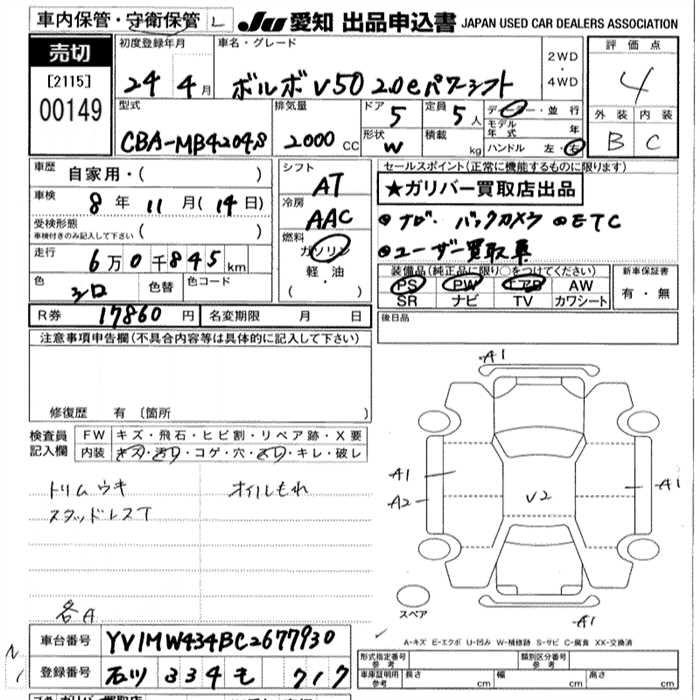 車内保管・守衛保管 L JU 愛知 出品申込書 JAPAN USED CAR DEALERS ASSOCIATION
売切 初度登録年月 車名・グレード 2WD・4WD 評価点
[2115] 24年 4月 ボルボ V50 2.0e パワーシフト 4
00149 型式 排気量 ドア 定員 ディーラー・並行 外装 内装
CBA-MB4204S 2000 cc 5 5人 モデル年式 年 B C
形状 W 積載 kg ハンドル 左・右
車歴 自家用・( ) シフト AT セールスポイント(正常に機能するものに限ります)
車検 8年 11月(14日) 冷房 AAC ★ガリバー買取店出品
受検形態 車検付きのみ記入して下さい ( ) 燃料 ガソリン 軽油 (・) ●ナビ・バックカメラ ●ETC
走行 6万0千845km ●ユーザー買取車
色 シロ 色替 色コード 装備品(純正品に限り○をつけてください) 新車保証書
PS PW エアB AW 有・無
SR ナビ TV カワシート
R券 17860円 名変期限 月 日 後日品
注意事項申告欄(不具合内容等は具体的に記入して下さい)
修復歴 有〔箇所 〕
検査員記入欄 FW キズ・飛石・ヒビ割・リペア跡・X要
内装 キズ・汚り・コゲ・穴・スレ・キレ・破レ
トリムウキ オイルもれ
スタッドレスT
各A
A1
A1
A2
V2
A1
A1
スペア
A-キズ E-エクボ U-凹み W-補修跡 S-サビ C-腐食 XX-交換済
車台番号 YV1MW434BC2677930
登録番号 石川 334 も 717
形式指定番号 参考 類別区分番号 参考
車庫証明用 参考 長さ cm 幅 cm 高さ cm